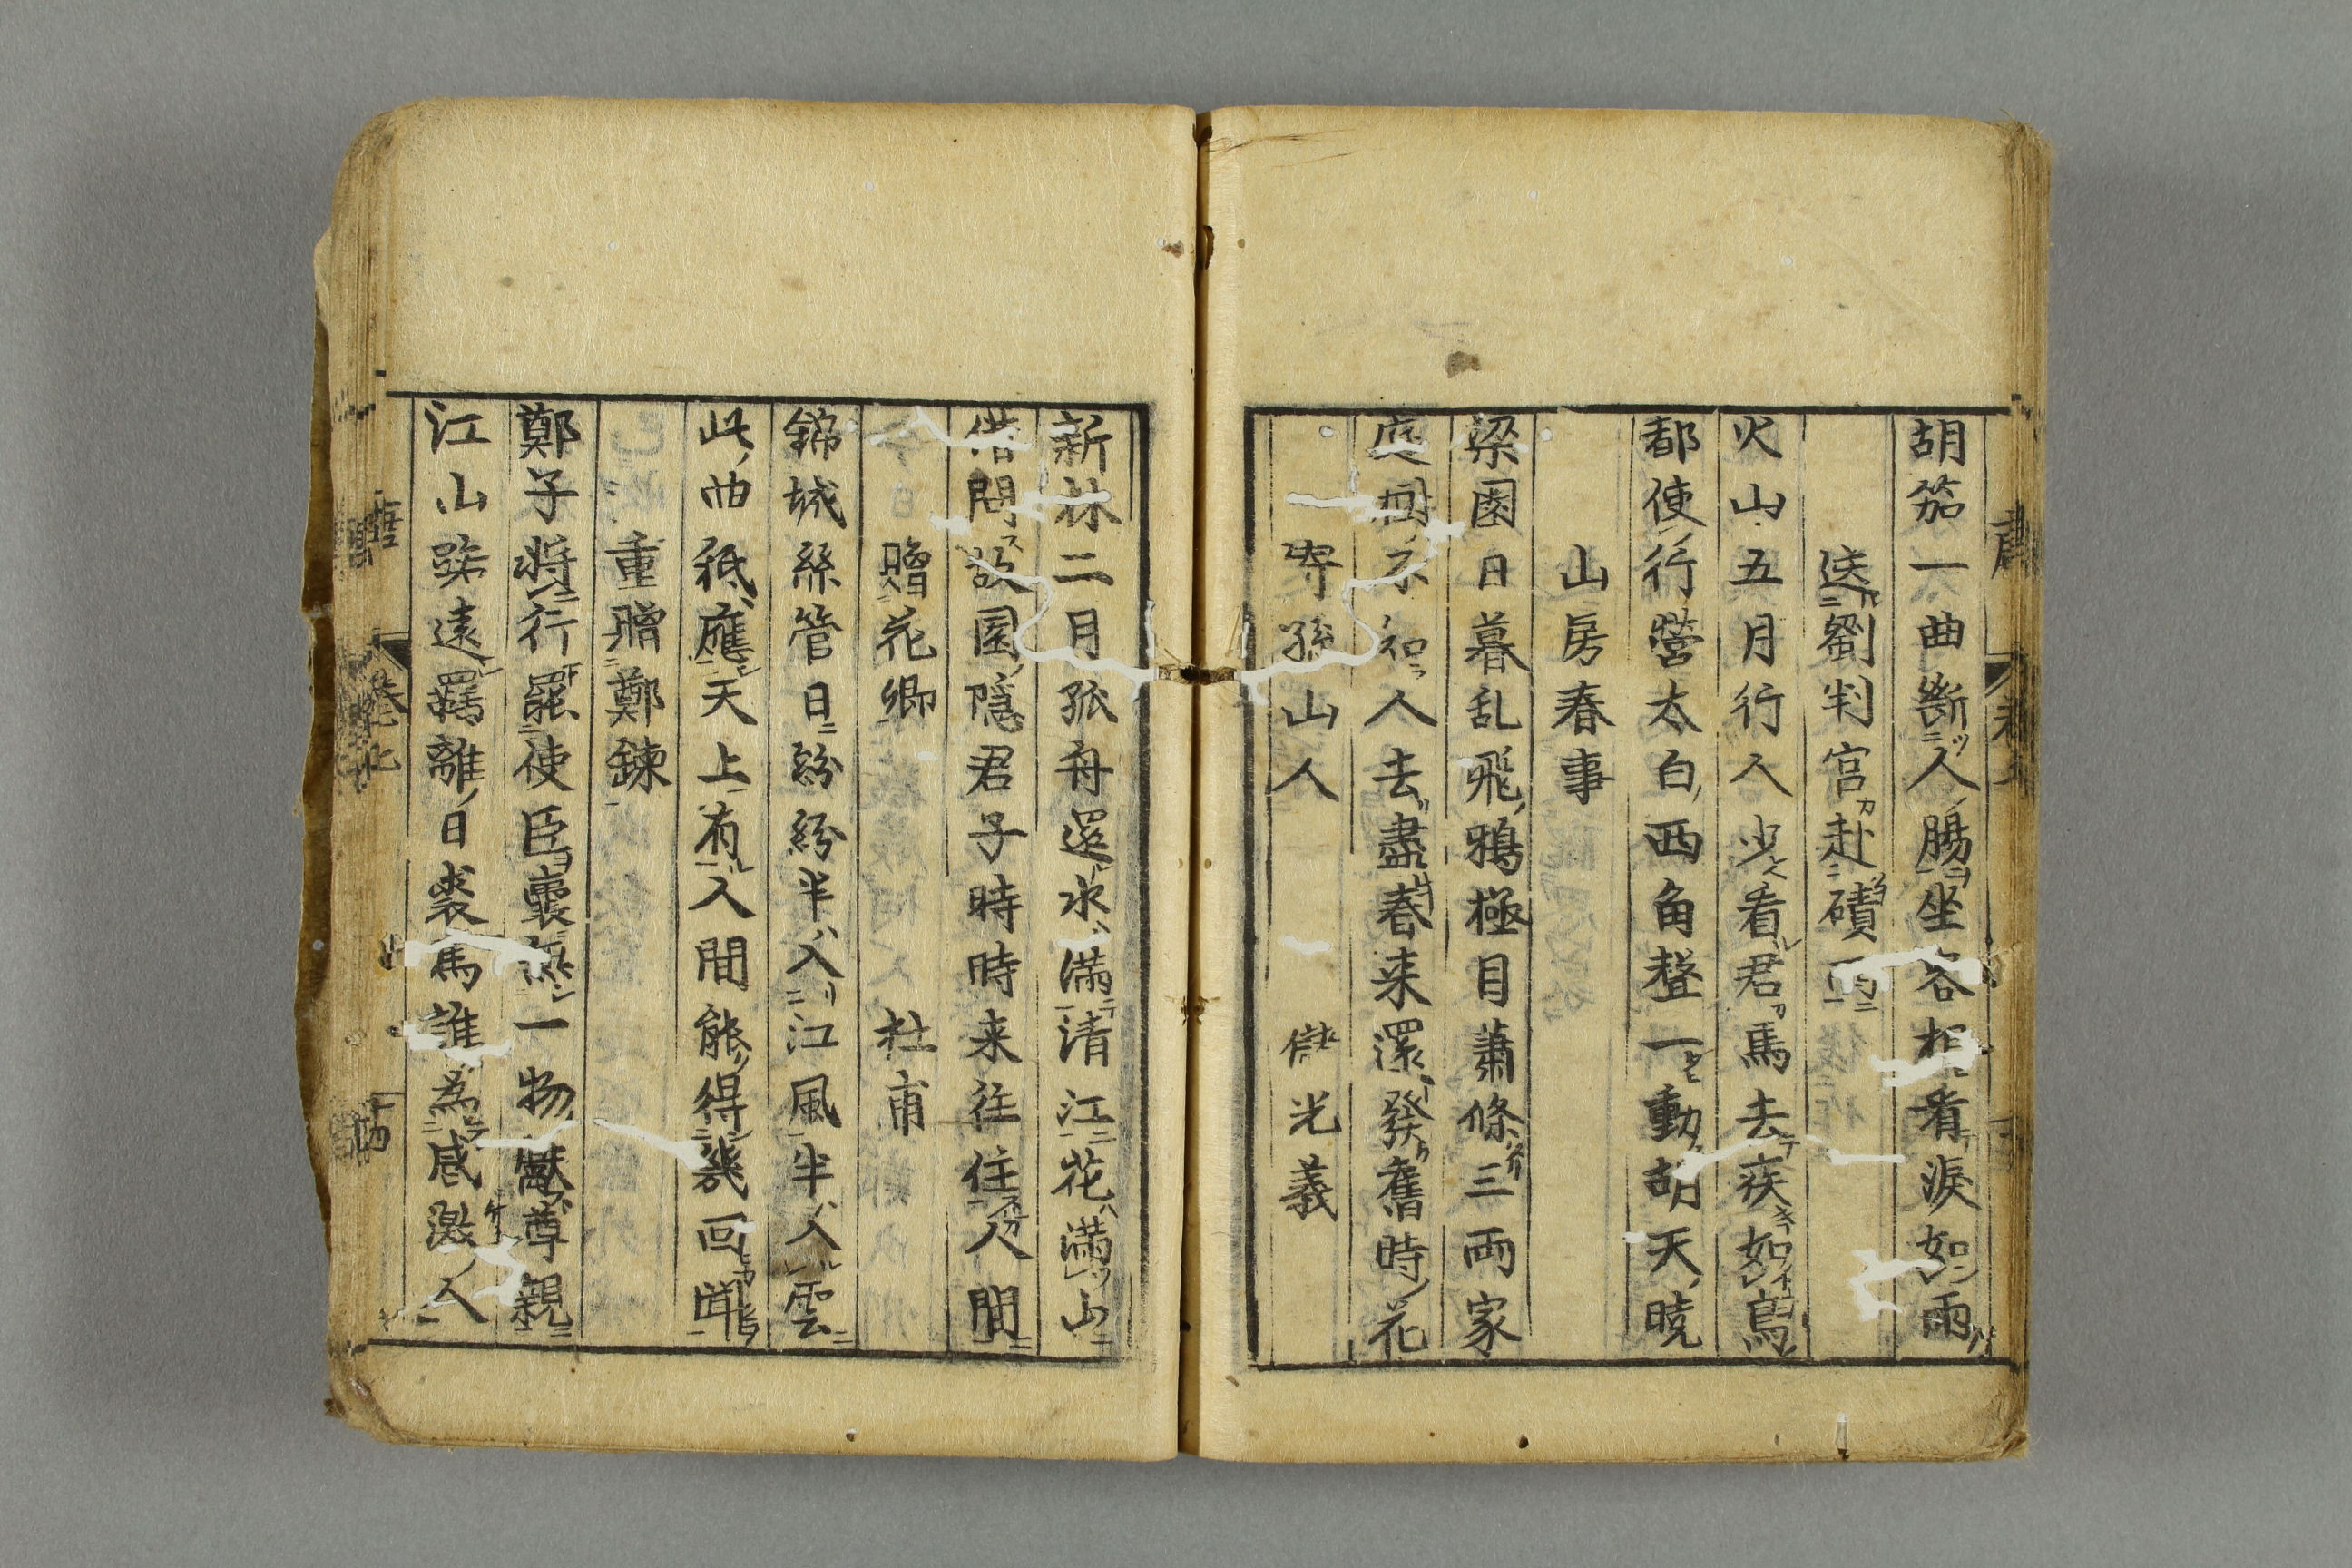 胡笳一曲斷人腸坐客相看淚如雨
送劉判官赴磧西
火山五月行人少看君馬去疾如鳥
都使行營太白西角聲一動胡天曉
山房春事
梁園日暮乱飛鴉極目蕭條三兩家
庭樹不知人去盡春来還發舊時花
寄孫山人　儲光義
新林二月孤舟還水滿清江花滿山
借問故園隱君子時時来往住人間
贈花卿　杜甫
錦城絲管日紛紛半入江風半入雲
此曲秖應天上有人間能得幾回聞
重贈鄭鍊
鄭子將行罷使臣囊無一物獻尊親
江山路遠羈離日裘馬誰為感激人